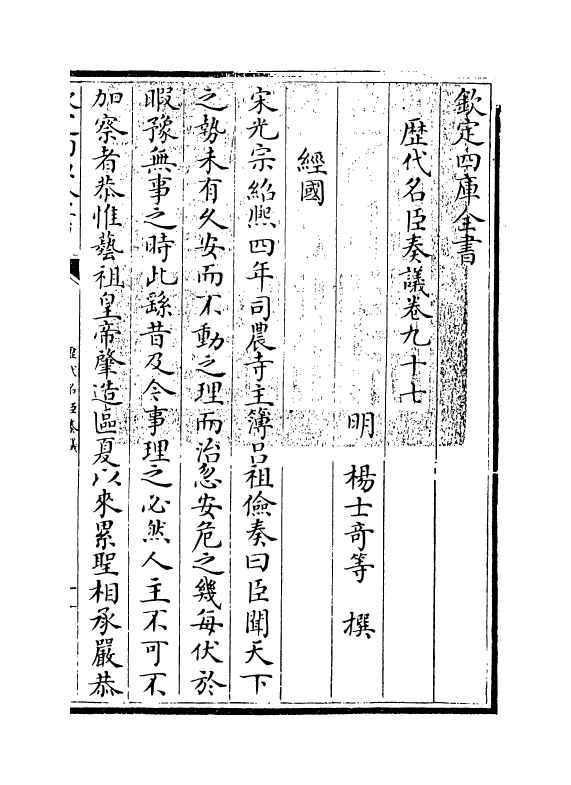 欽定四庫全書
歴代名臣奏議卷九十七
明 楊士奇等 撰
經國
宋光宗紹熙四年司農寺主簿吕祖儉奏曰臣聞天下
之勢未有久安而不動之理而治忽安危之幾每伏於
暇豫無事之時此繇昔及今事理之必然人主不可不
加察者恭惟藝祖皇帝肇造區夏以來累聖相承嚴恭
歴代名臣奏議